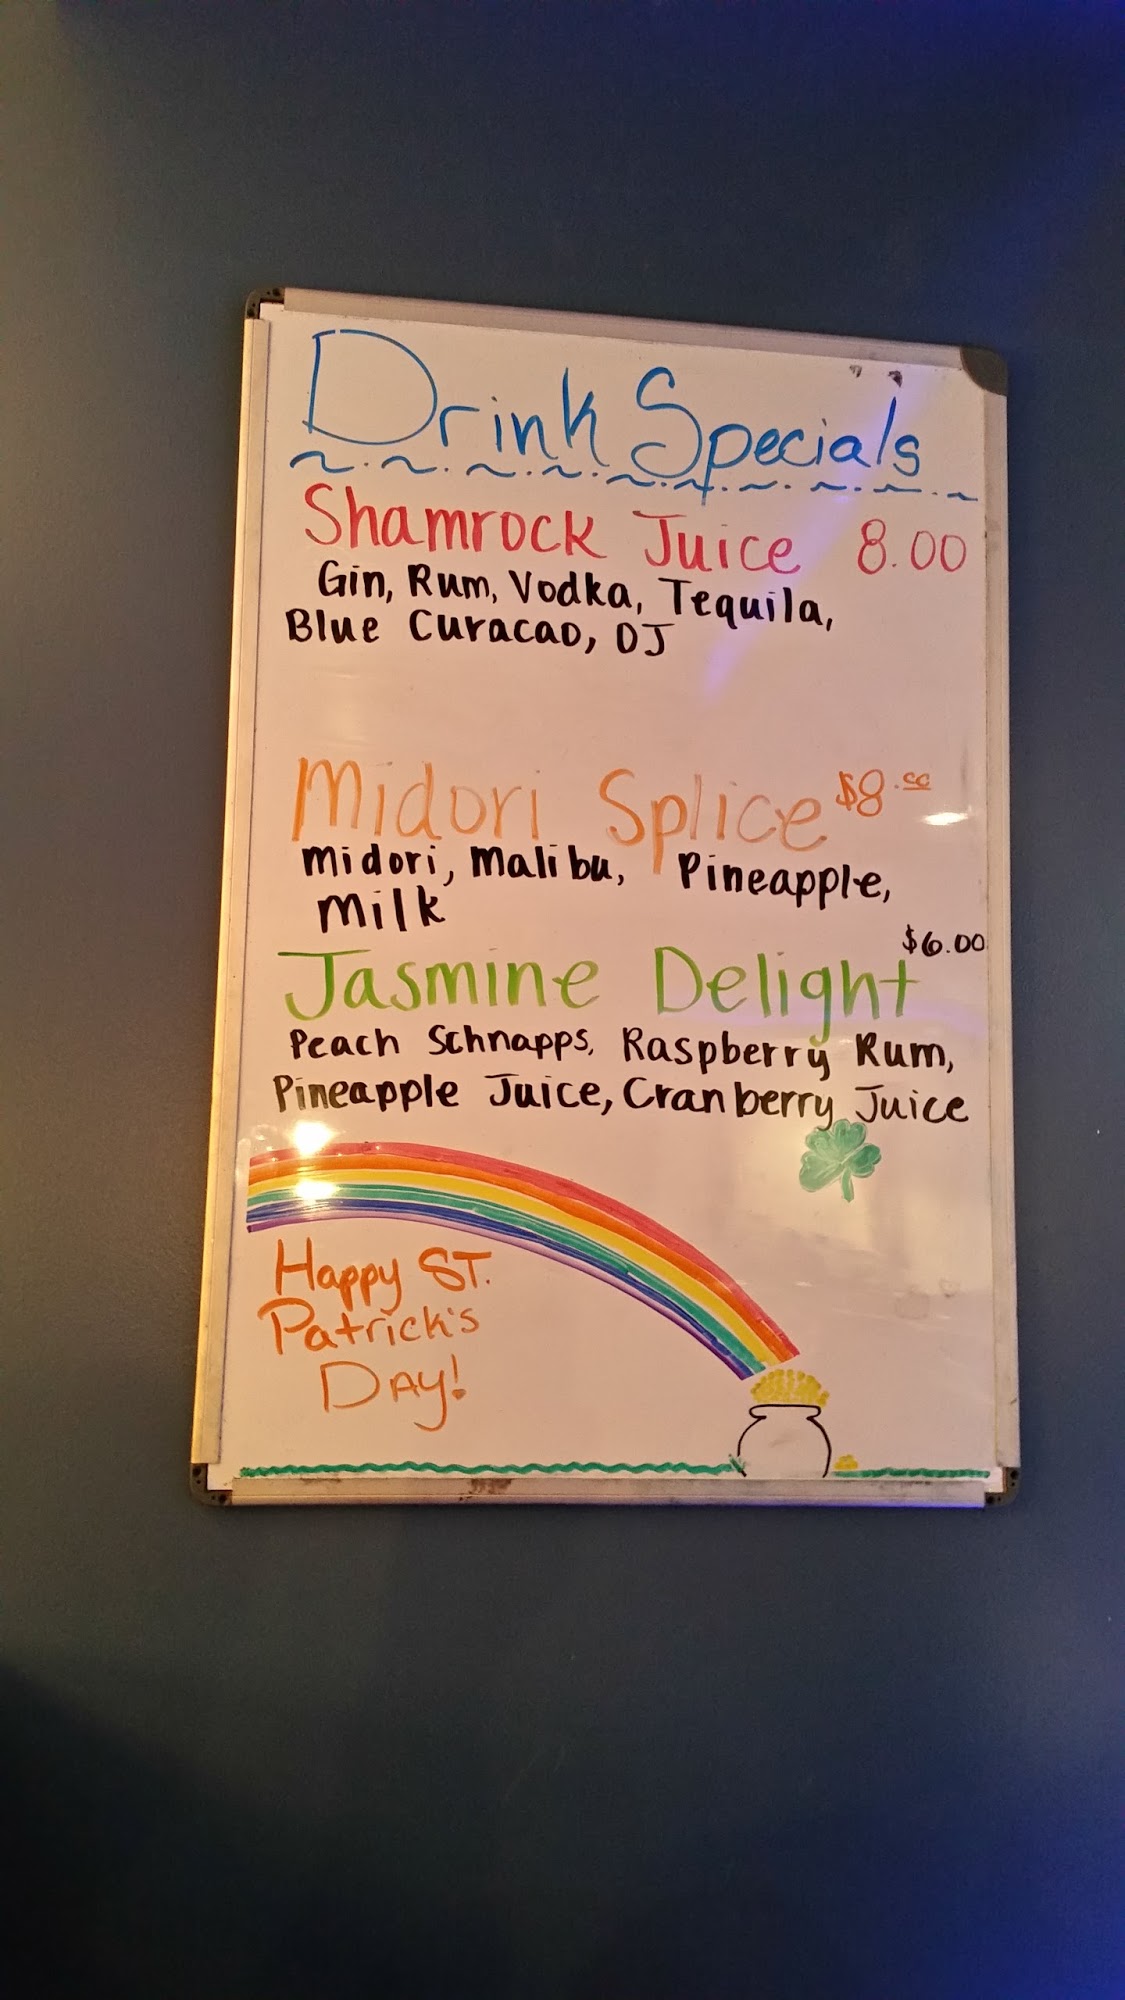 Drink Specials
Shamrock Juice 8.00
Gin, Rum, Vodka, Tequila,
Blue Curacao, OJ
Midori Splice $8.00
Midori, Malibu, Pineapple,
Milk
Jasmine Delight $6.00
Peach Schnapps, Raspberry Rum,
Pineapple Juice, Cranberry Juice
Happy ST.
Patrick's
DAY!